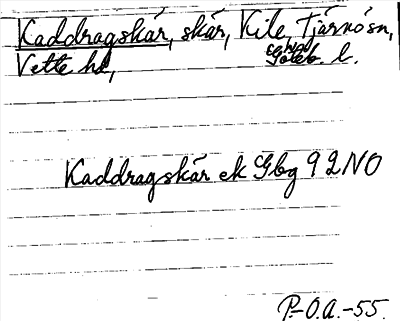 Kaddragskär, skär, Kile, Tjärnösn,
Vette hd, Göteb. l.
Kaddragskär ek Gbg 92NO
P.-O.A.-55.